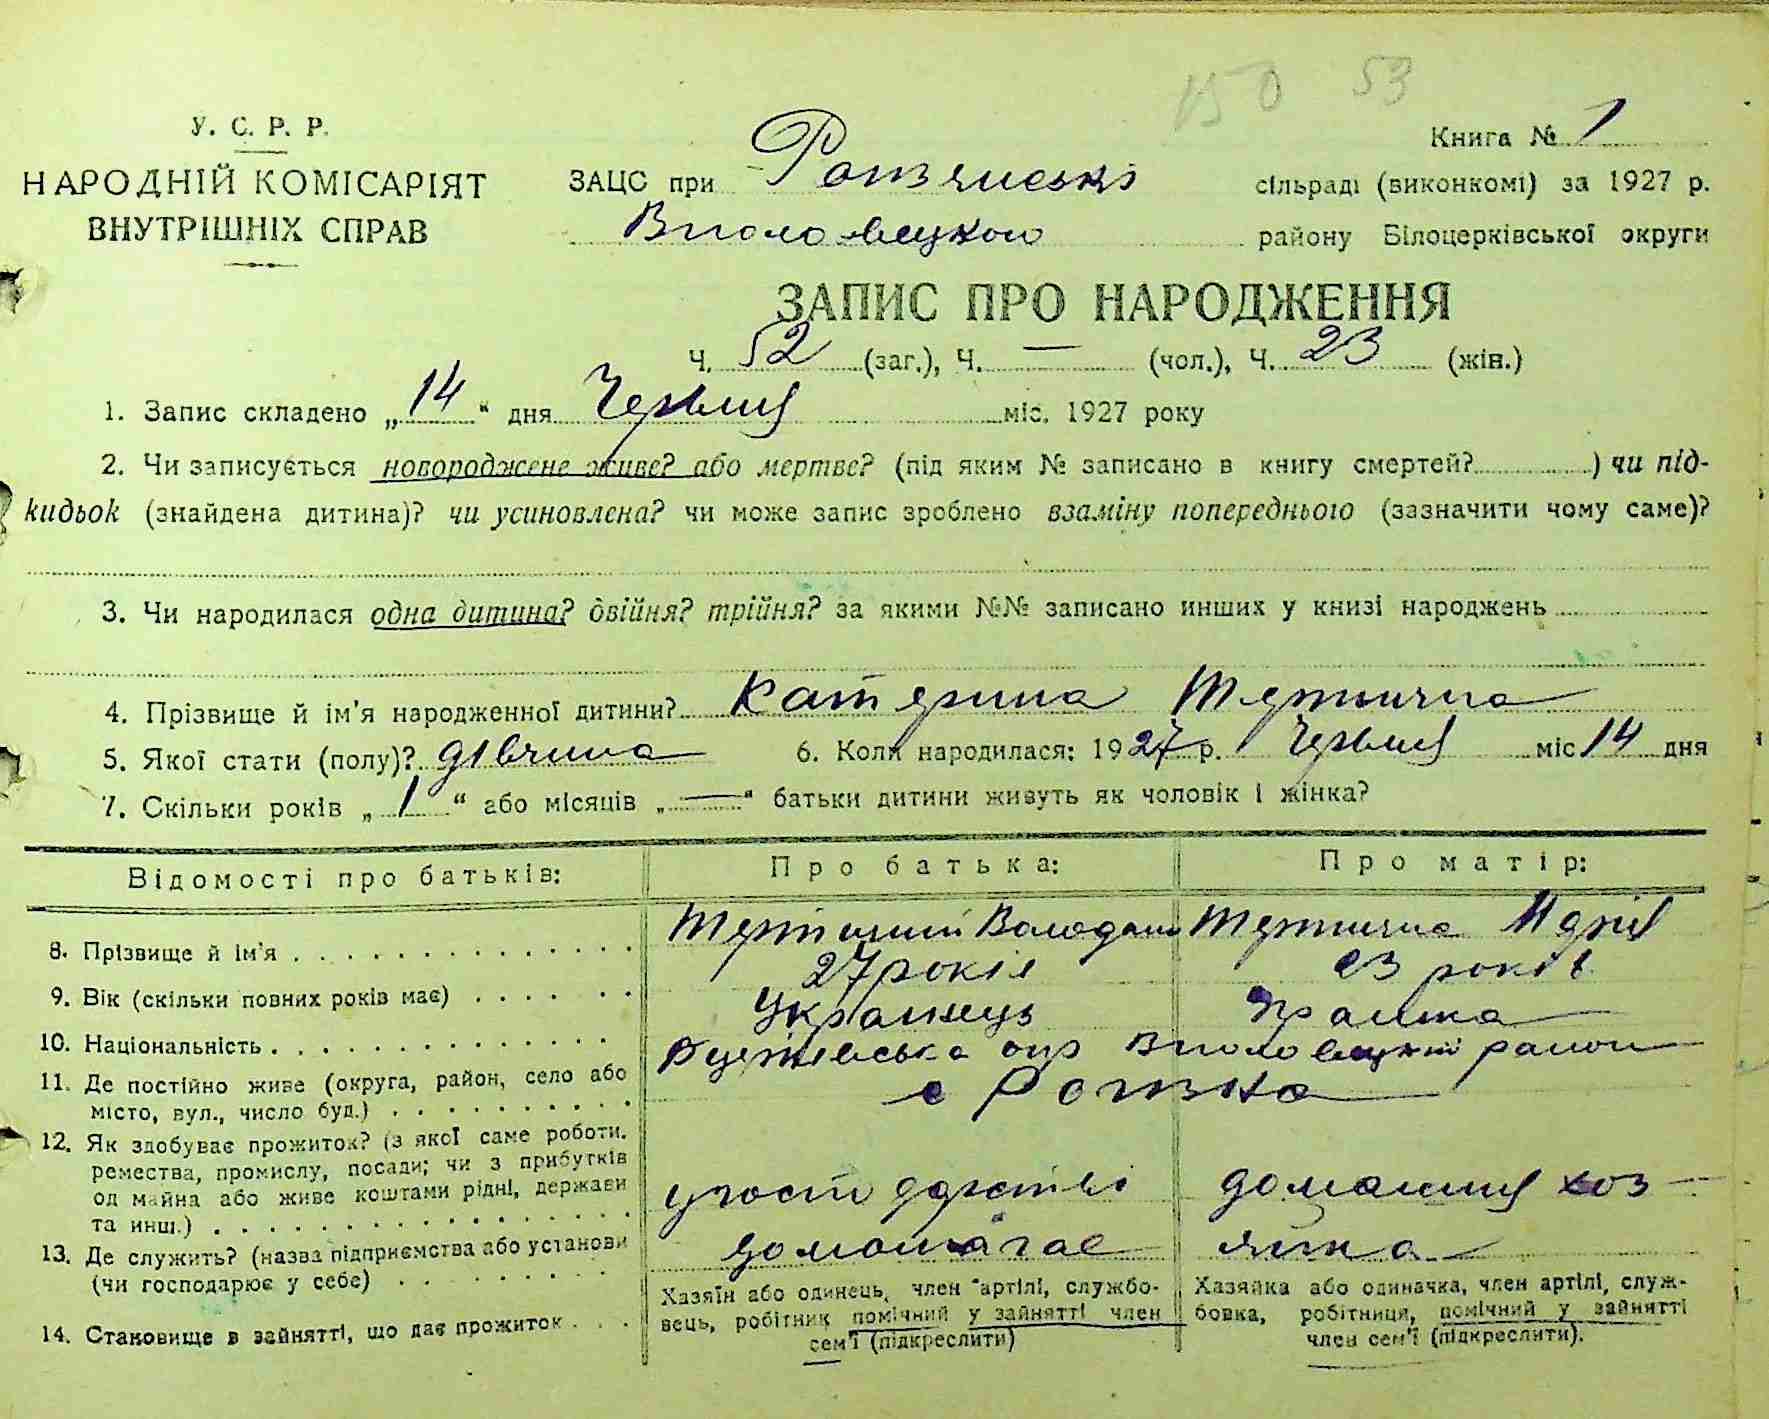 150 53
Книга № 1
У. С. Р. Р.
НАРОДНІЙ КОМІСАРІЯТ
ВНУТРІШНІХ СПРАВ
ЗАЦС при сільраді (виконкомі) за 1927 р.
району Білоцерківської округи
ЗАПИС ПРО НАРОДЖЕННЯ
Ч. 52 (заг.), Ч. — (чол.), Ч. 23 (жін.)
1. Запис складено „14“ дня Червня міс. 1927 року
2. Чи записується новороджене живе? або мертве? (під яким № записано в книгу смертей? ) чи під-
кидьок (знайдена дитина)? чи усиновлена? чи може запис зроблено взаміну попереднього (зазначити чому саме)?
3. Чи народилася одна дитина? двійня? трійня? за якими №№ записано инших у книзі народжень
4. Прізвище й ім'я народженної дитини? Катерина Тертична
5. Якої стати (полу)? дівчина 6. Коли народилася: 1927 р. Червня міс 14 дня
7. Скільки років „1“ або місяців „—“ батьки дитини живуть як чоловік і жінка?
Відомості про батьків: Про батька: Про матір:
8. Прізвище й ім'я Тертичний Тертична Марія
9. Вік (скільки повних років має) 27 років 23 років
10. Національність Українець
11. Де постійно живе (округа, район, село або район
місто, вул., число буд.) с
12. Як здобуває прожиток? (з якої саме роботи,
ремества, промислу, посади; чи з прибутків
од майна або живе коштами рідні, держави домашня хоз
та инш.)
13. Де служить? (назва підприємства або установи допомагає яйка
(чи господарює у себе)
14. Становище в зайнятті, що дає прожиток
Хазяїн або одинець, член артілі, службо-
вець, робітник помічний у зайнятті член
сем'ї (підкреслити)
Хазяйка або одиначка, член артілі, служ-
бовка, робітниця, помічний у зайнятті
член сем'ї (підкреслити).